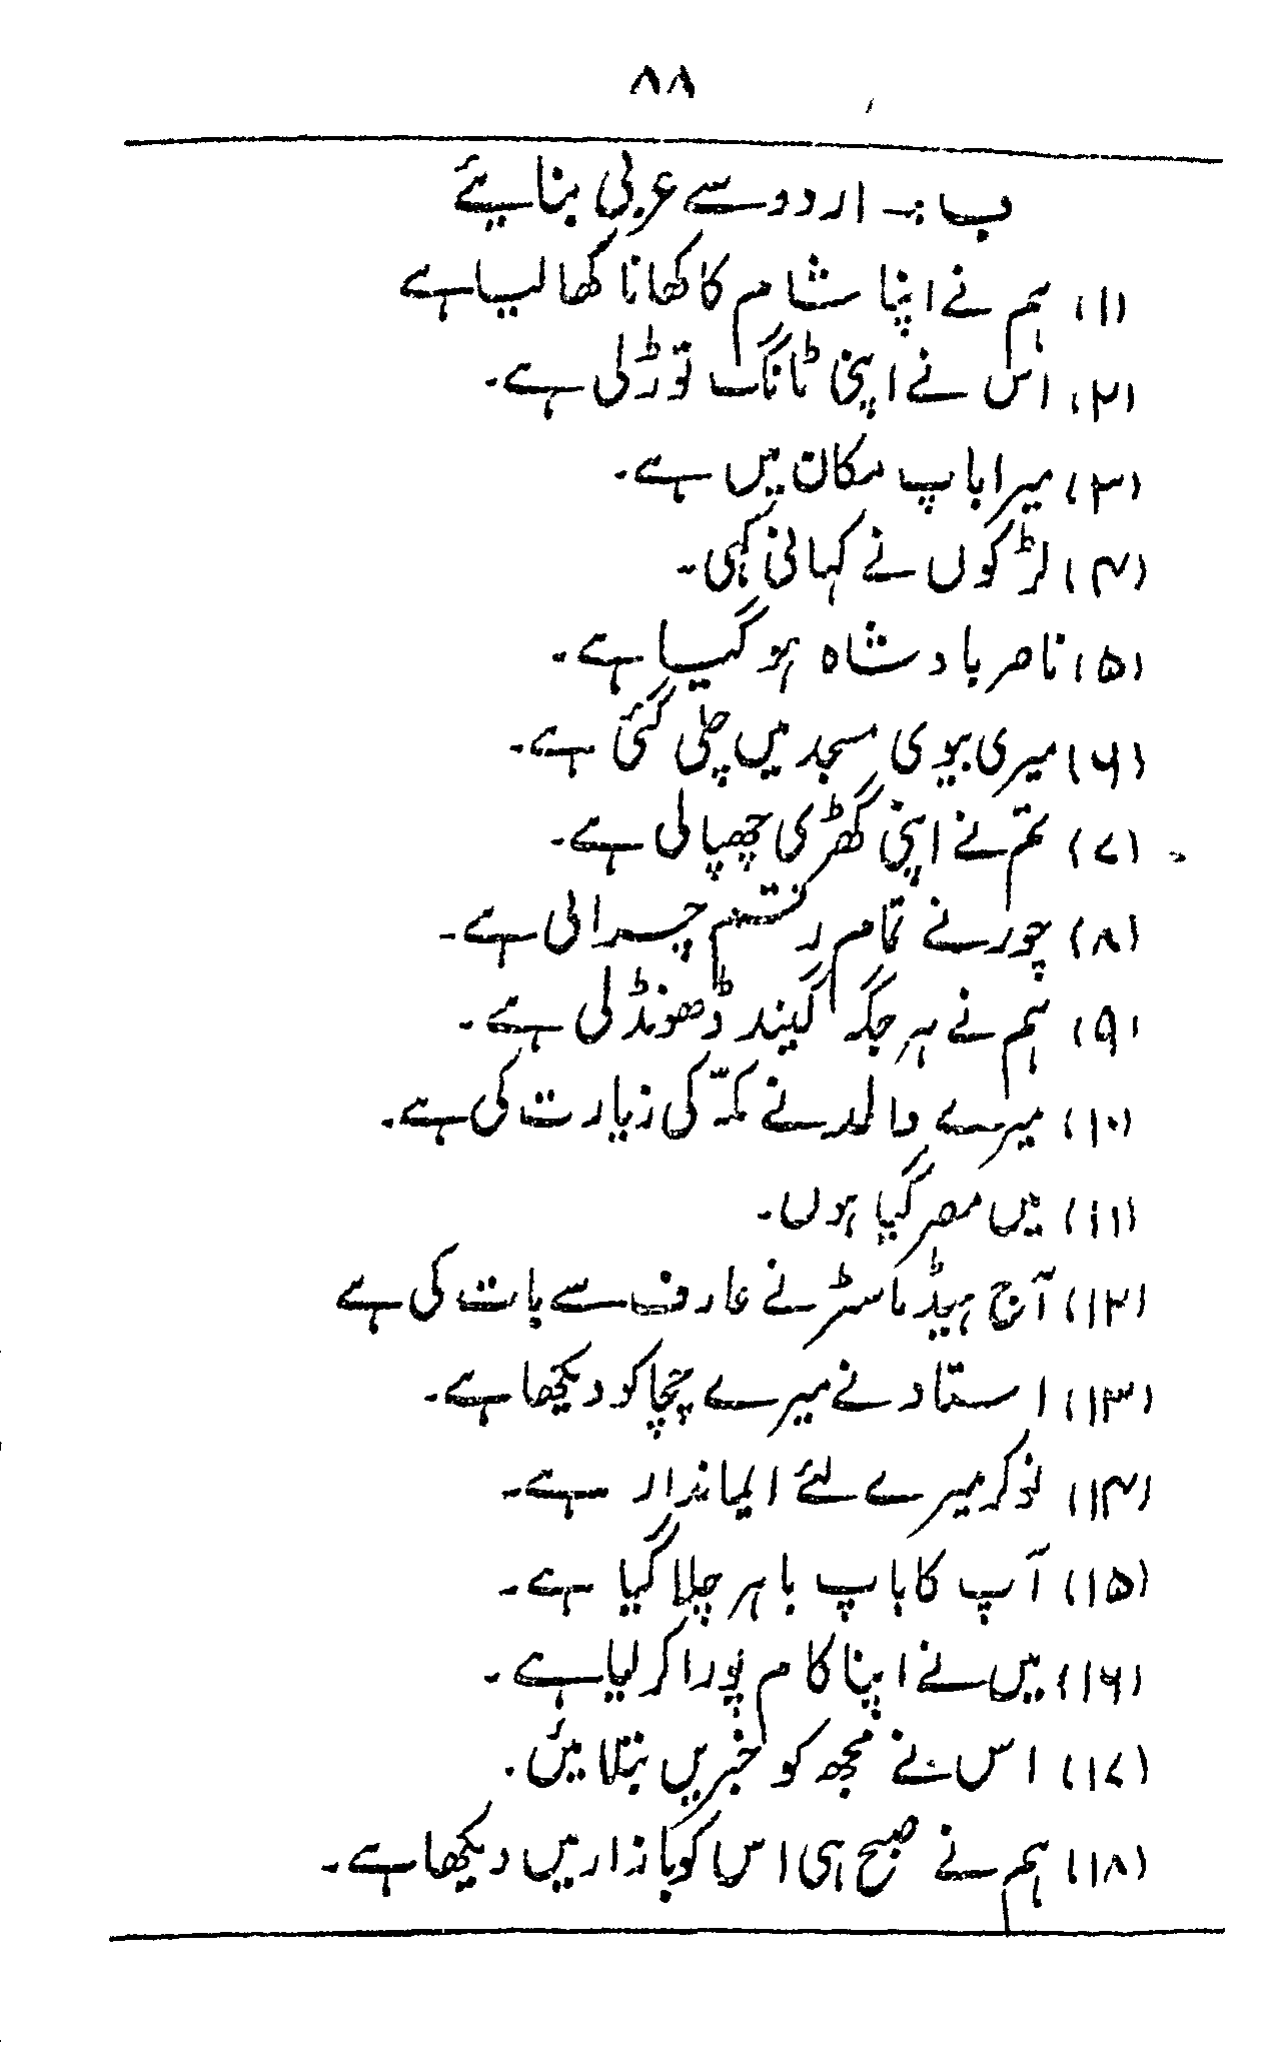 ۸۸
ب :۔ اردو سے عربی بنائیے
(۱) ہم نے اپنا شام کا کھانا کھا لیا ہے
(۲) اس نے اپنی ٹانگ توڑ لی ہے۔
(۳) میرا باپ مکان میں ہے۔
(۴) لڑکوں نے کہانی کہی۔
(۵) ناصر بادشاہ ہو گیا ہے۔
(۶) میری بیوی مسجد میں چلی گئی ہے۔
(۷) تم نے اپنی گھڑی چھپا لی ہے۔
(۸) چور نے تمام رقم چرا لی ہے۔
(۹) ہم نے ہر جگہ گیند ڈھونڈ لی ہے۔
(۱۰) میرے والد نے مکّہ کی زیارت کی ہے۔
(۱۱) میں مصر گیا ہوں۔
(۱۲) آج ہیڈ ماسٹر نے عارف سے بات کی ہے
(۱۳) استاد نے میرے چچا کو دیکھا ہے۔
(۱۴) نوکر میرے لئے ایماندار ہے۔
(۱۵) آپ کا باپ باہر چلا گیا ہے۔
(۱۶) میں نے اپنا کام پورا کر لیا ہے۔
(۱۷) اس نے مجھ کو خبریں بتلائیں۔
(۱۸) ہم نے صبح ہی اس کو بازار میں دیکھا ہے۔